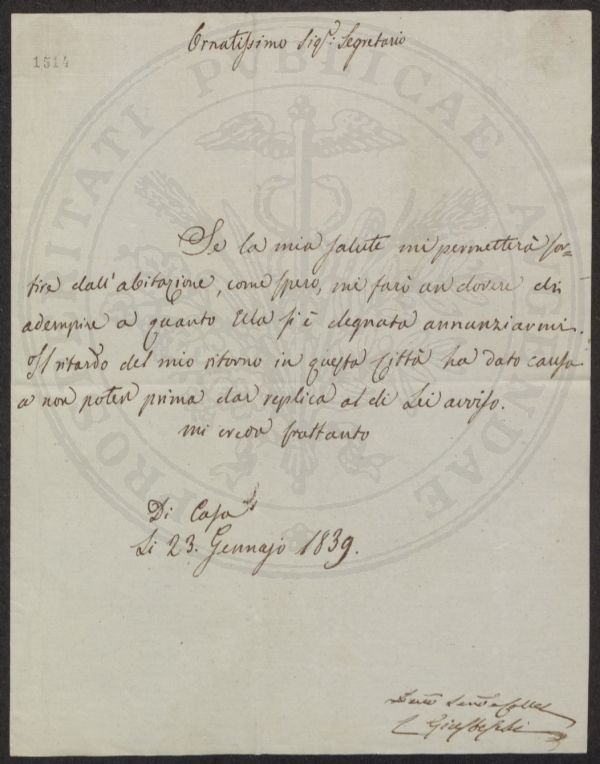 Ornatissimo Sigr. Segretario
1514
PROSPERITATI PUBLICAE AUGENDAE
Se la mia salute mi permetterà sor=
tire dall'abitazione, come spero, mi farò un dovere di
adempire a quanto Ella si è degnata annunziarmi.
Il ritardo del mio ritorno in questa Città ha dato causa
a non poter prima dar replica al di Lei avviso.
mi creda frattanto
Di Casa
Li 23. Gennajo 1839.